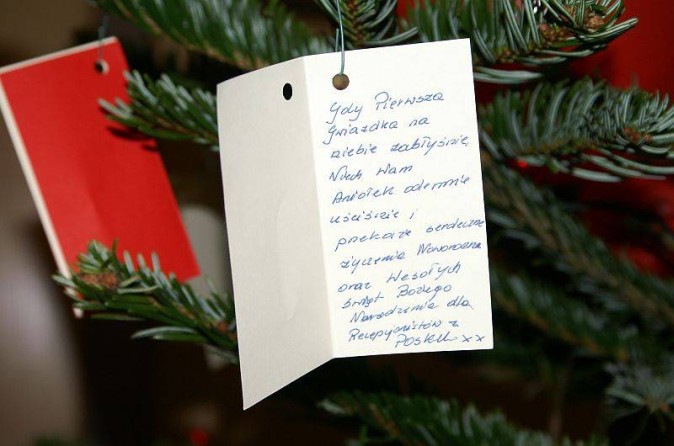 Gdy Pierwsza
Gwiazdka na
niebie zabłyśnie,
Niech Wam
Aniołek odemnie
uściśnie i
przekaże serdeczne
życzenia Noworoczne
oraz Wesołych
Świąt Bożego
Narodzenia dla
Recepcjonistów z
xx